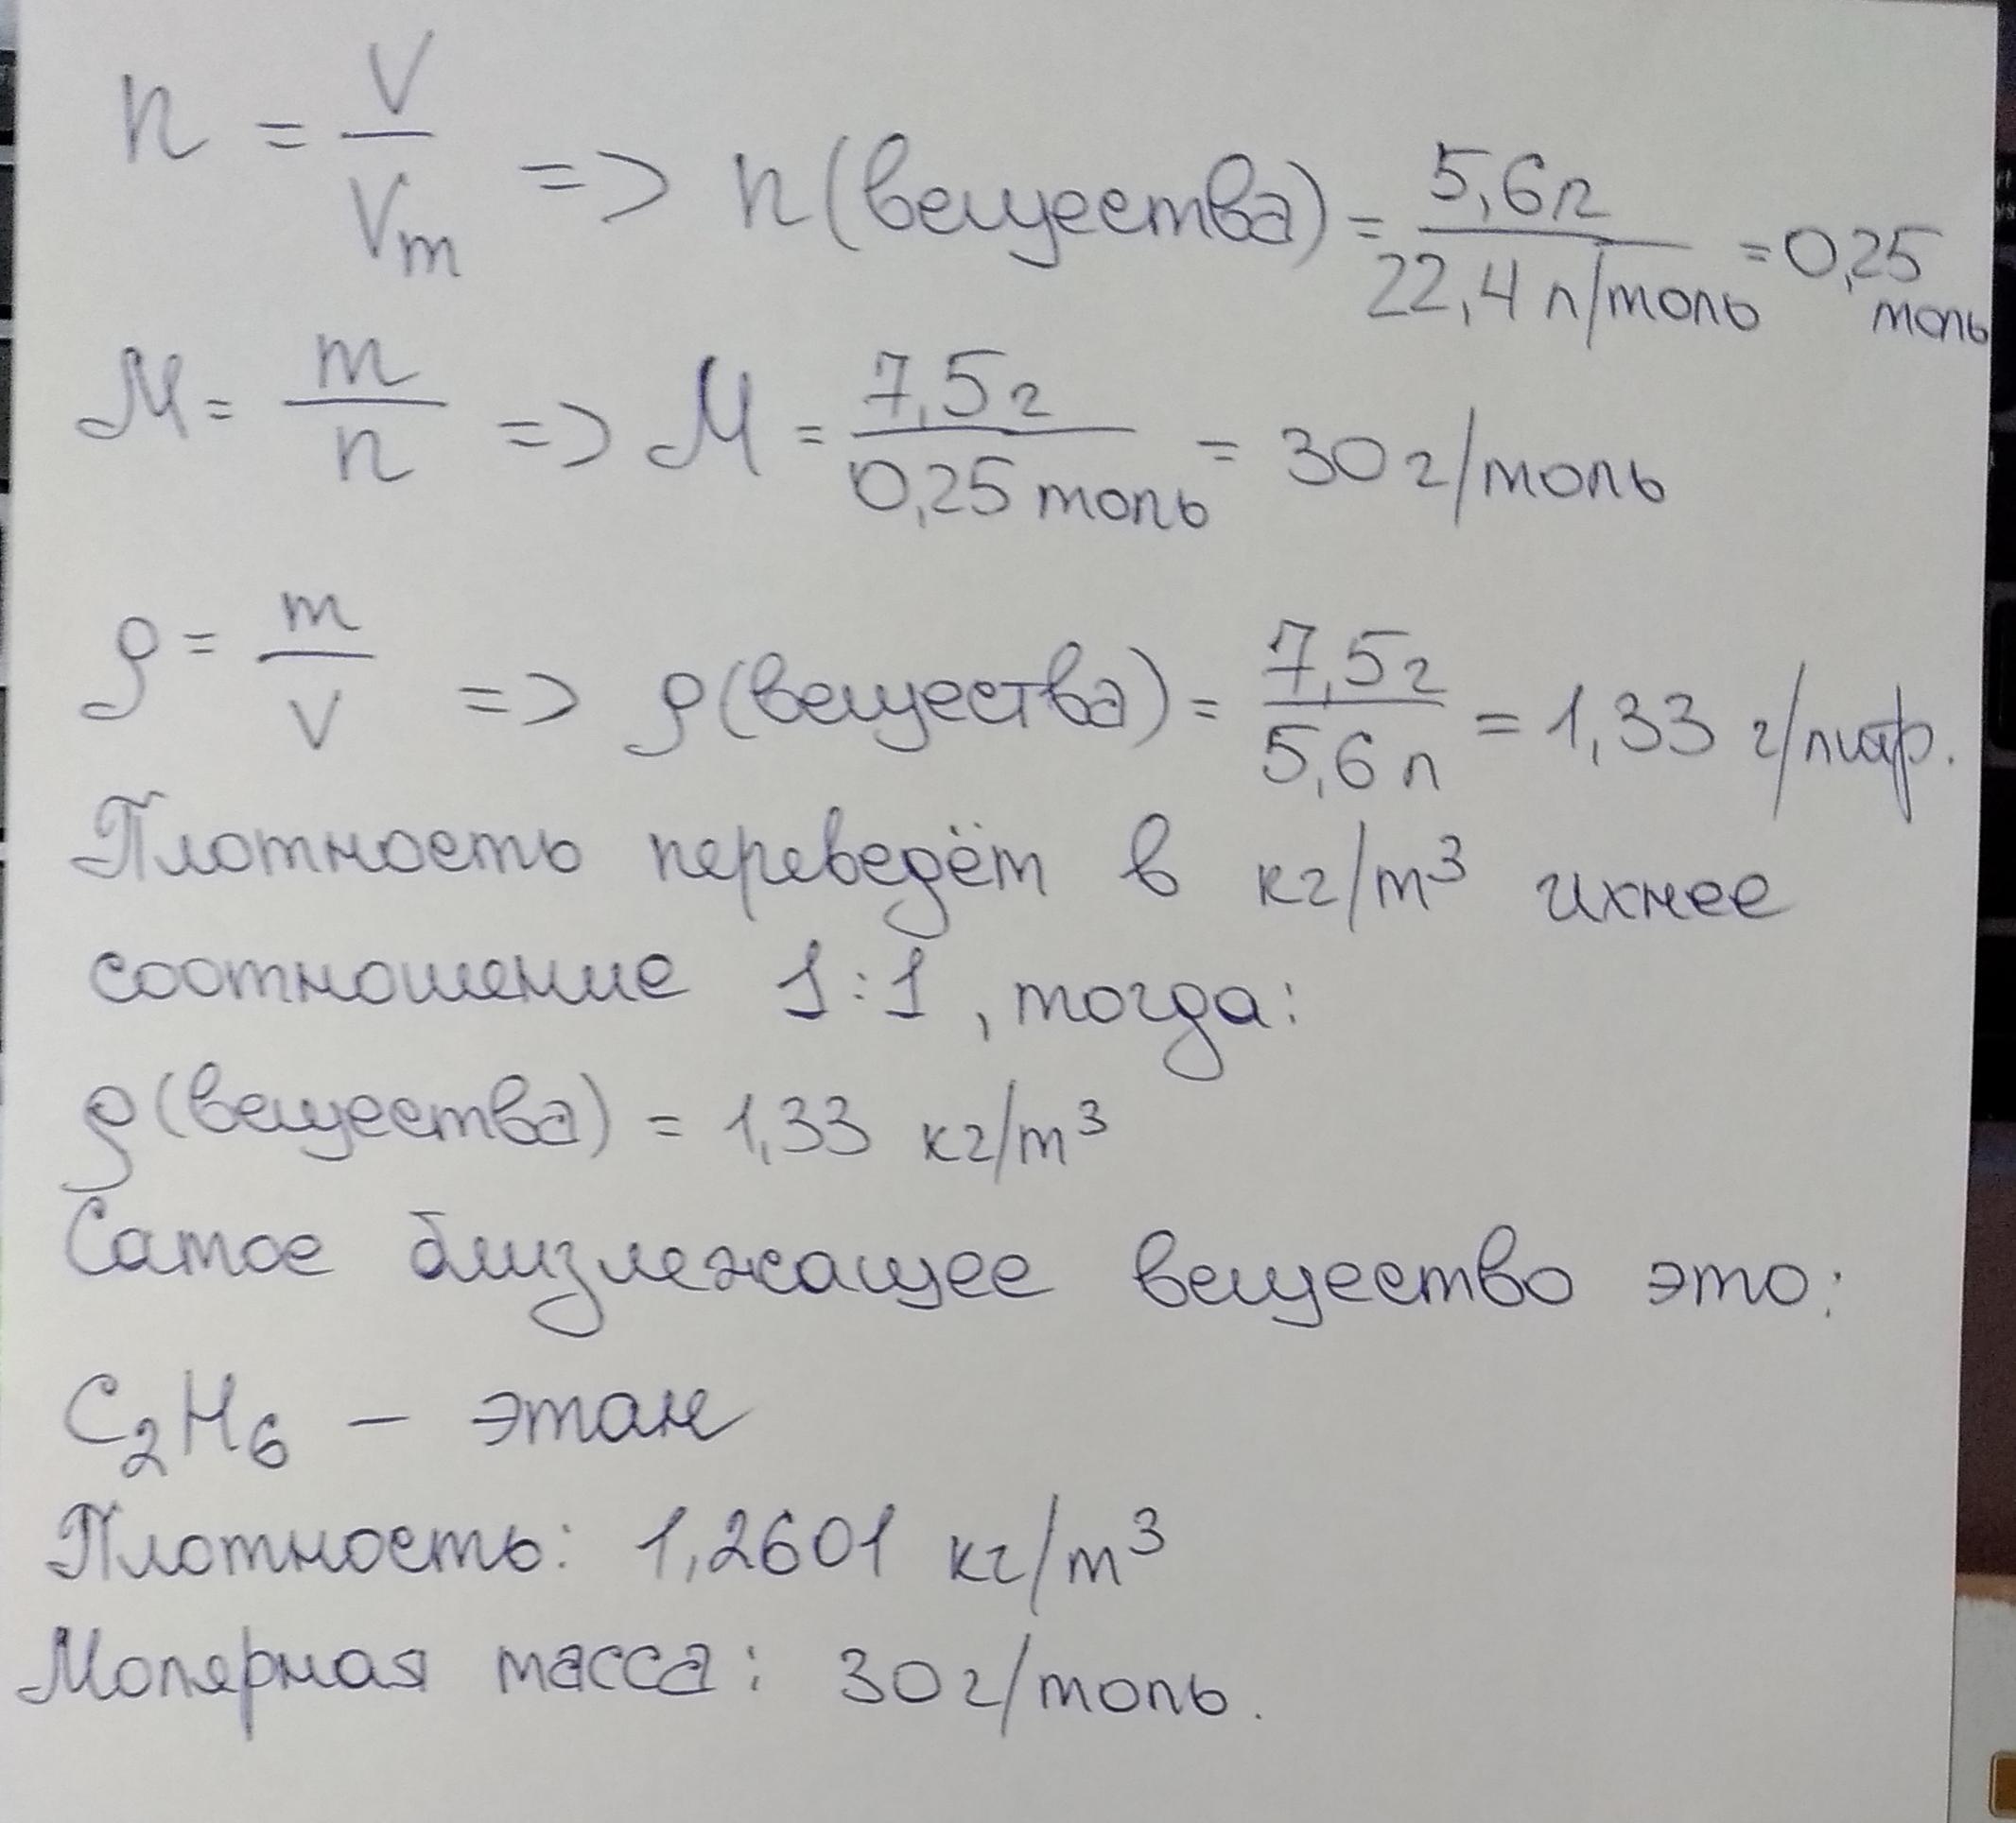 n = V/Vm => n(вещества) = 5,6л/22,4 л/моль = 0,25 моль
M = m/n => M = 7,5г/0,25 моль = 30 г/моль
ρ = m/V => ρ(вещества) = 7,5г/5,6 л = 1,33 г/литр.
Плотность переведём в кг/m³ ихнее
соотношение 1:1, тогда:
ρ(вещества) = 1,33 кг/m³
Самое близлежащее вещество это:
C₂H₆ – этан
Плотность: 1,2601 кг/m³
Молярная масса: 30 г/моль.